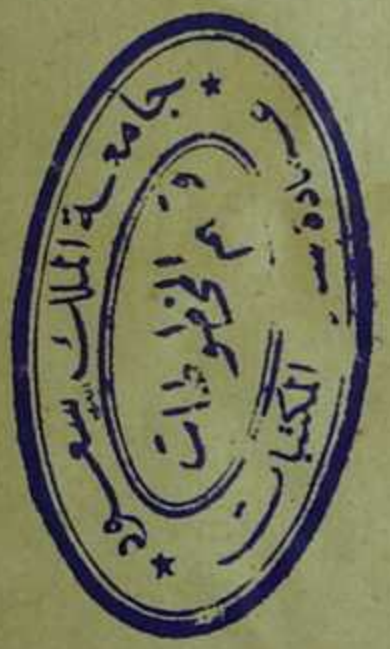 جامعة الملك سعود
قسم المخطوطات
المكتبات